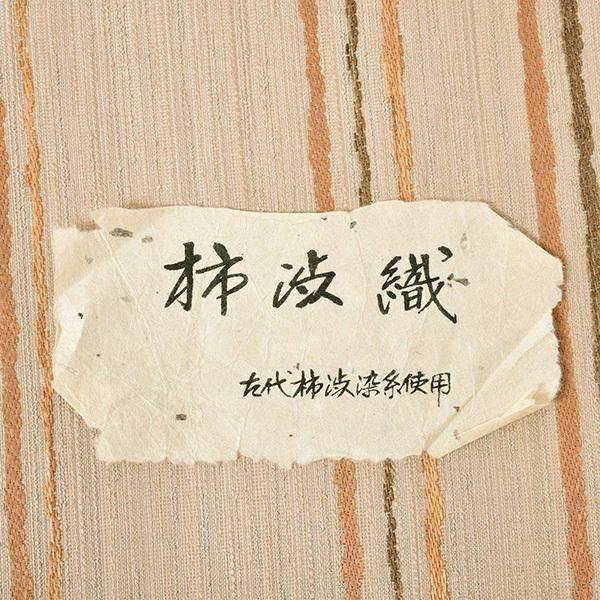 柿渋織
古代柿渋染糸使用